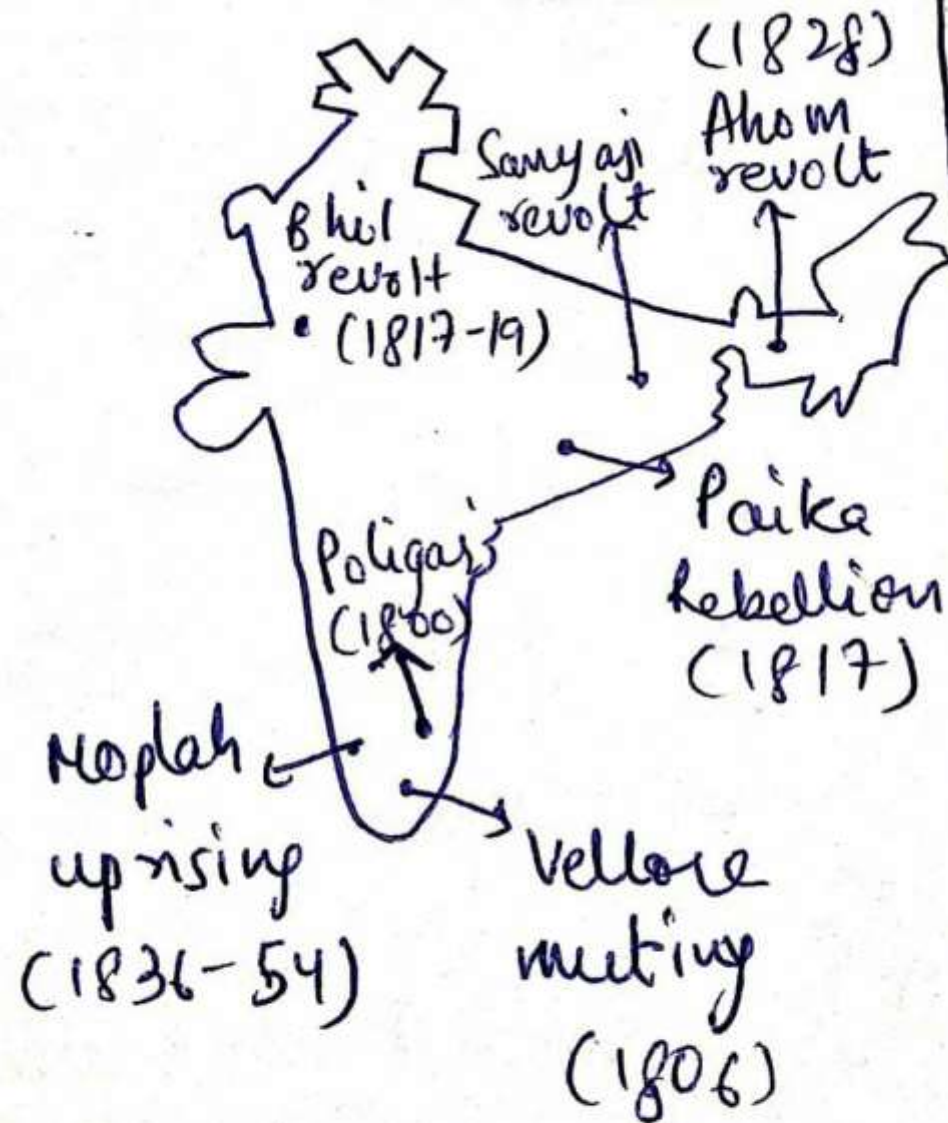 (1828)
Ahom
revolt
Sanyasi
revolt
Bhil
revolt
(1817-19)
Paika
Rebellion
(1817)
Poligars
(1800)
Moplah
uprising
(1836-54)
Vellore
mutiny
(1806)